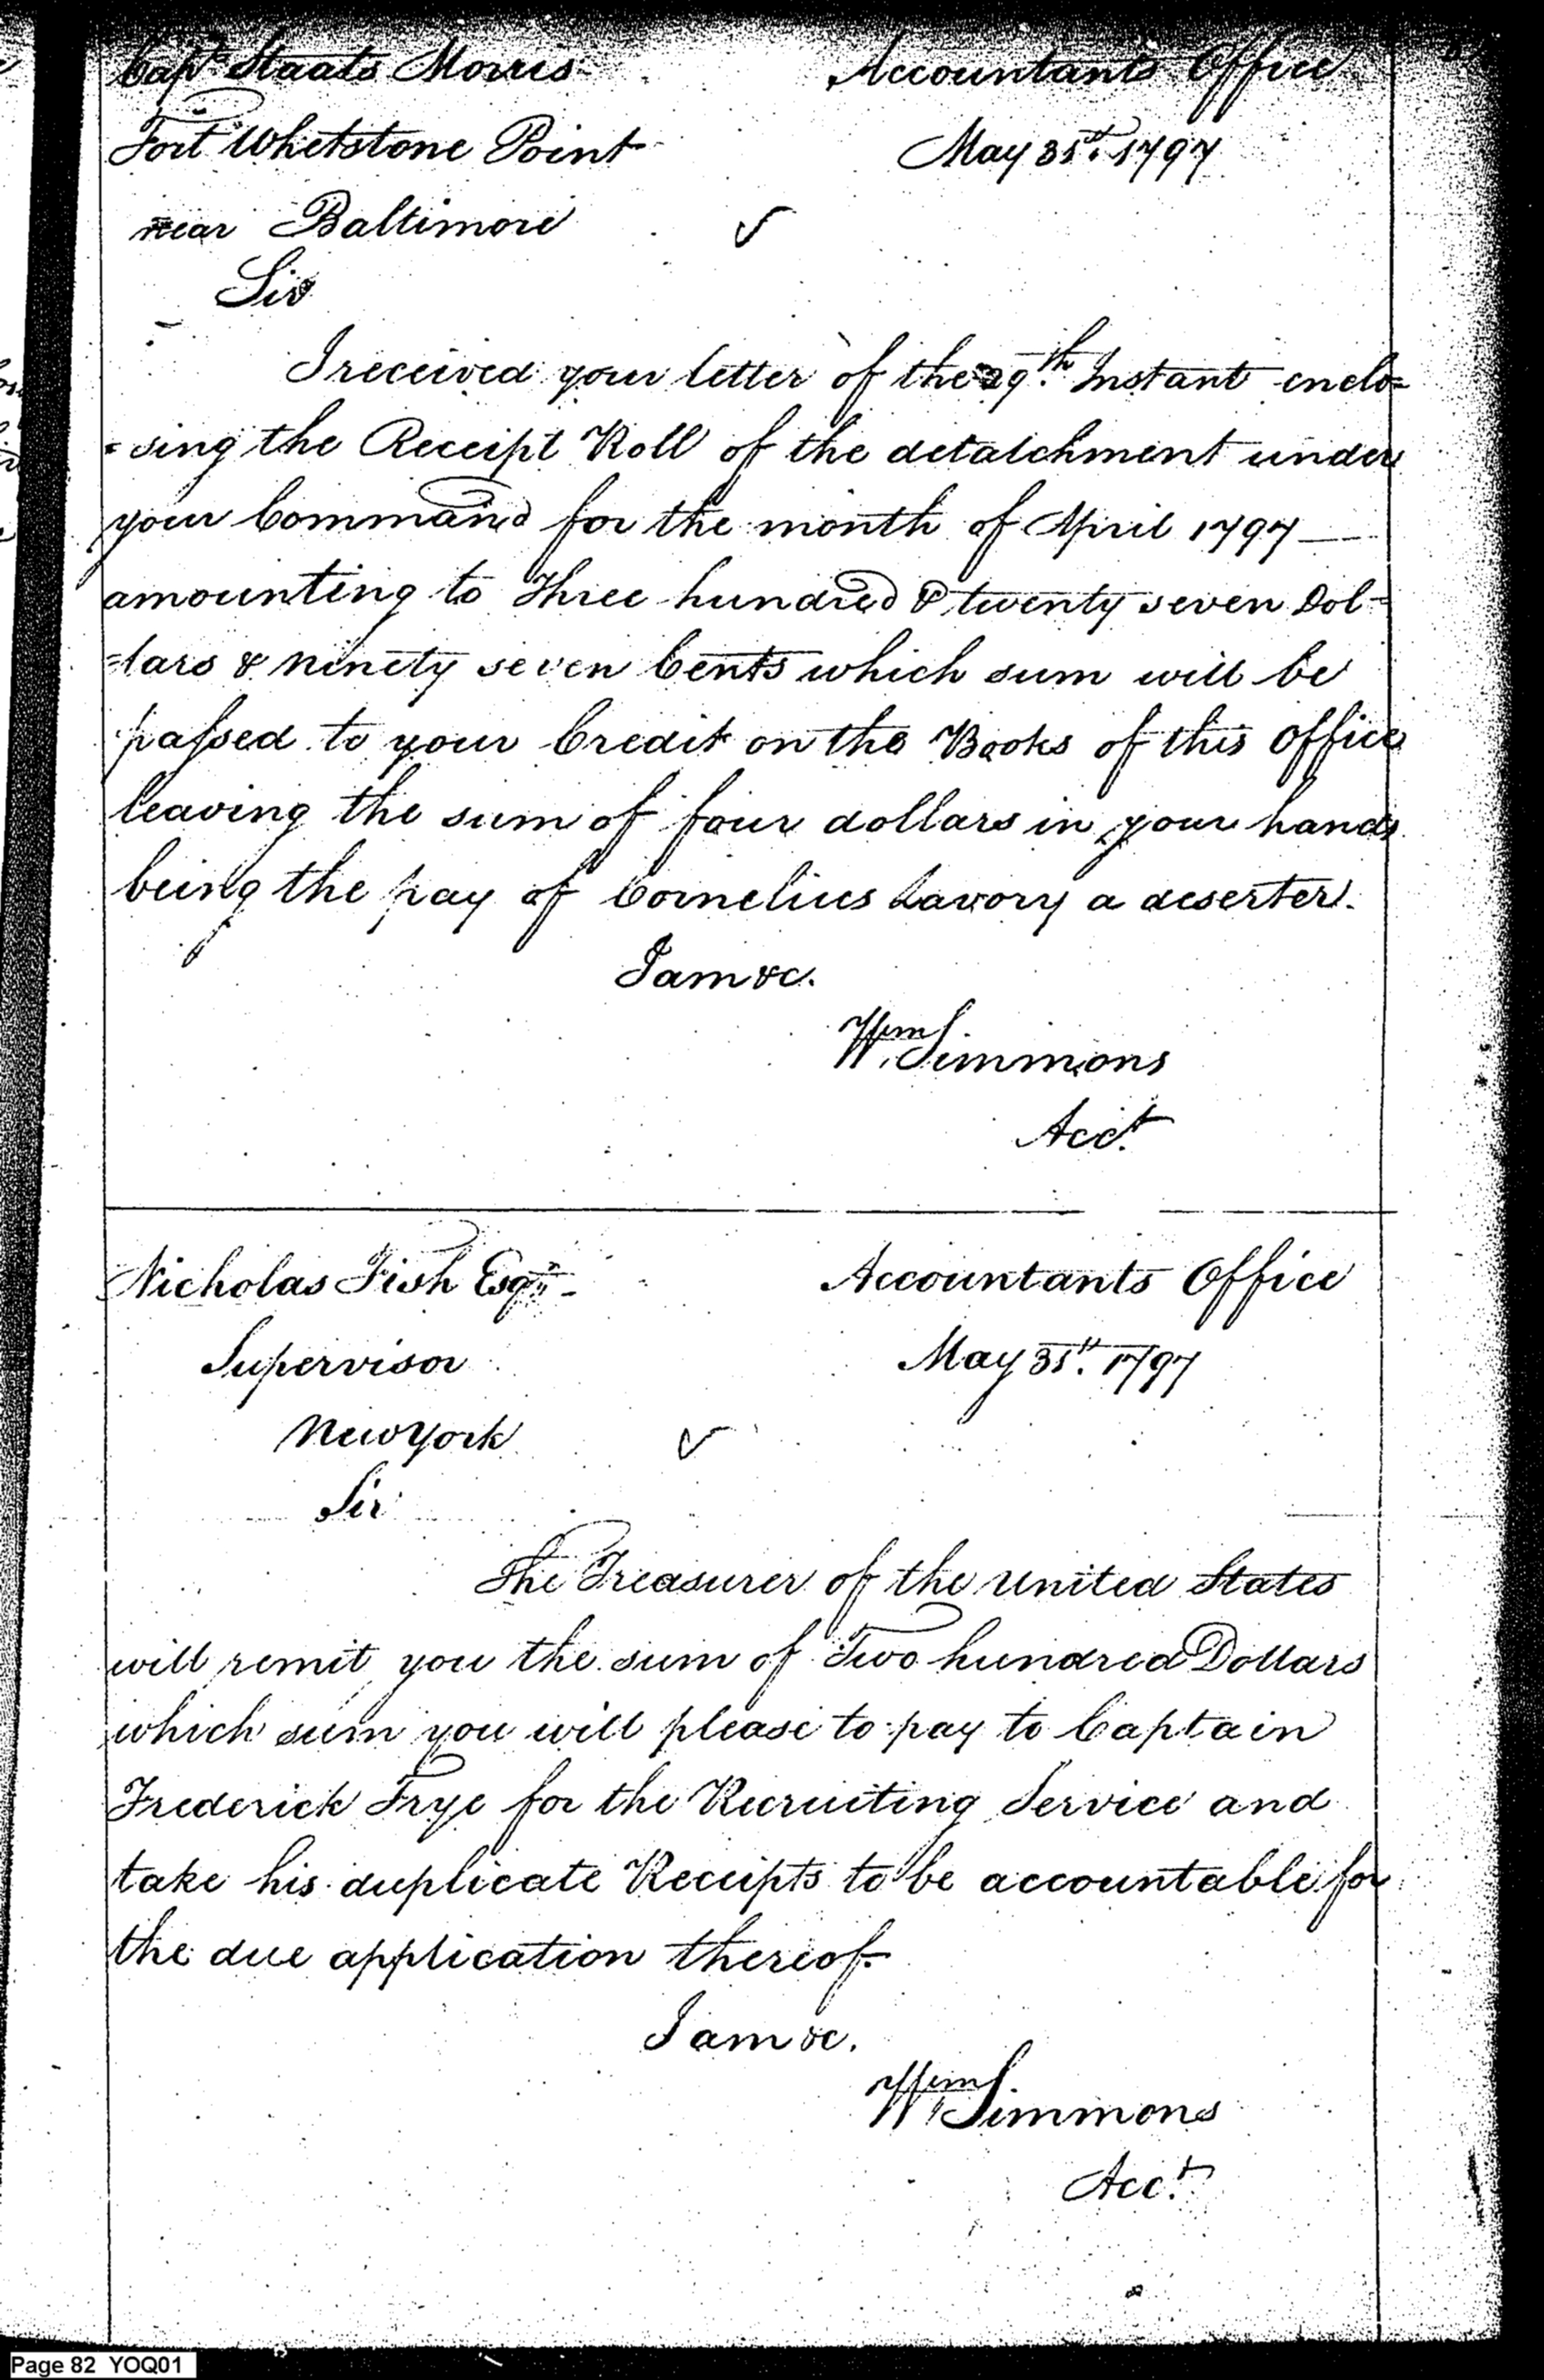 Capt Staats Morris Accountants Office
Fort Whetstone Point May 31st. 1797
near Baltimore
Sir
I received your letter of the 29th. Instant enclo=
=sing the Receipt Roll of the detatchment under
your Command for the month of April 1797
amounting to Three hundred & twenty seven Dol=
=lars & ninety seven Cents which sum will be
passed to your Credit on the Books of this office
leaving the sum of four dollars in your hands
being the pay of Cornelius Lavory a deserter.
I am &c.
Wm Simmons
Acct.
Nicholas Fish Esqr. Accountants Office
Supervisor May 31st. 1797
New York
Sir
The Treasurer of the United States
will remit you the sum of Two hundred Dollars
which sum you will please to pay to Captain
Frederick Frye for the Recruiting Service and
take his duplicate Receipts to be accountable for
the due application thereof.
I am &c.
Wm Simmons
Acct.
Page 82 YOQ01